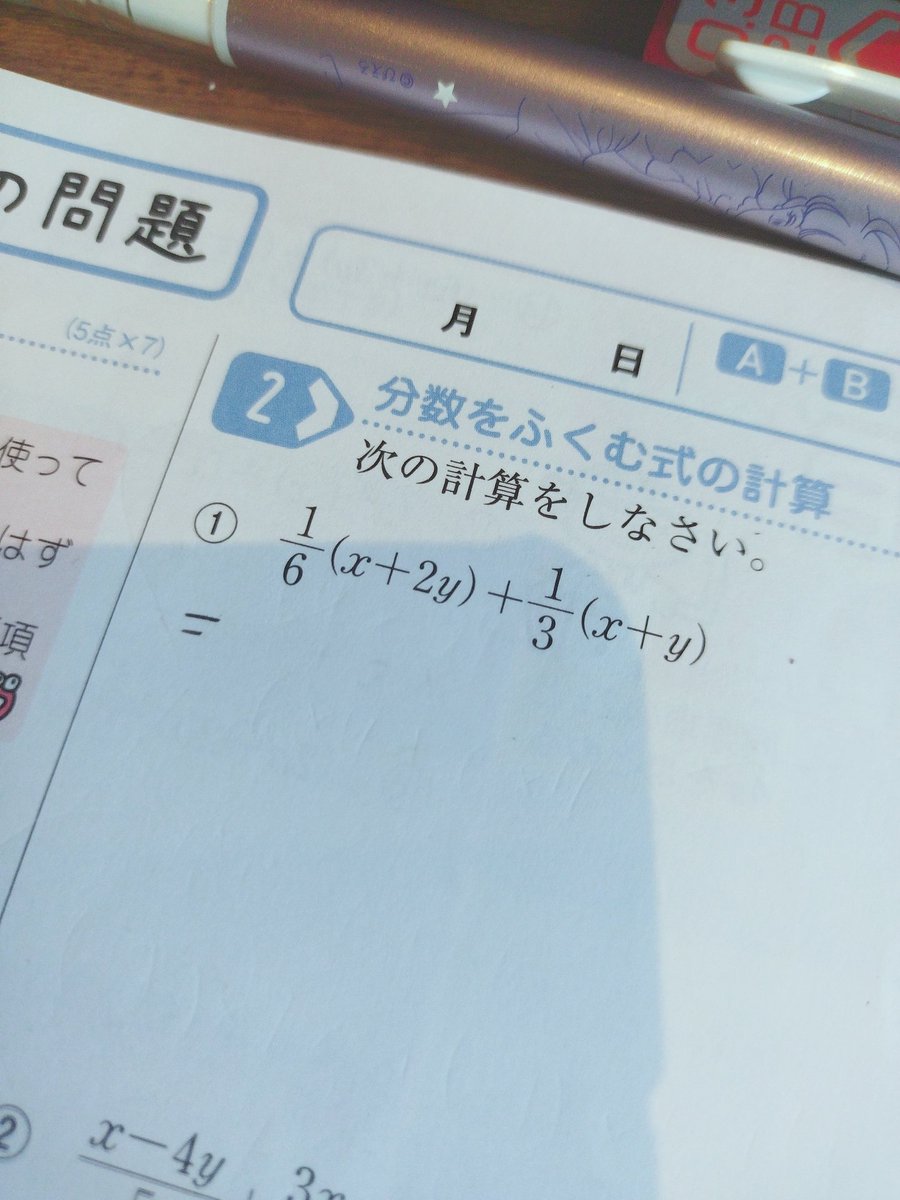 の問題
月 日 A+B
(5点×7)
使って
はず
項
2 分数をふくむ式の計算
次の計算をしなさい。
① 1/6(x+2y)+1/3(x+y)
=
② x−4y